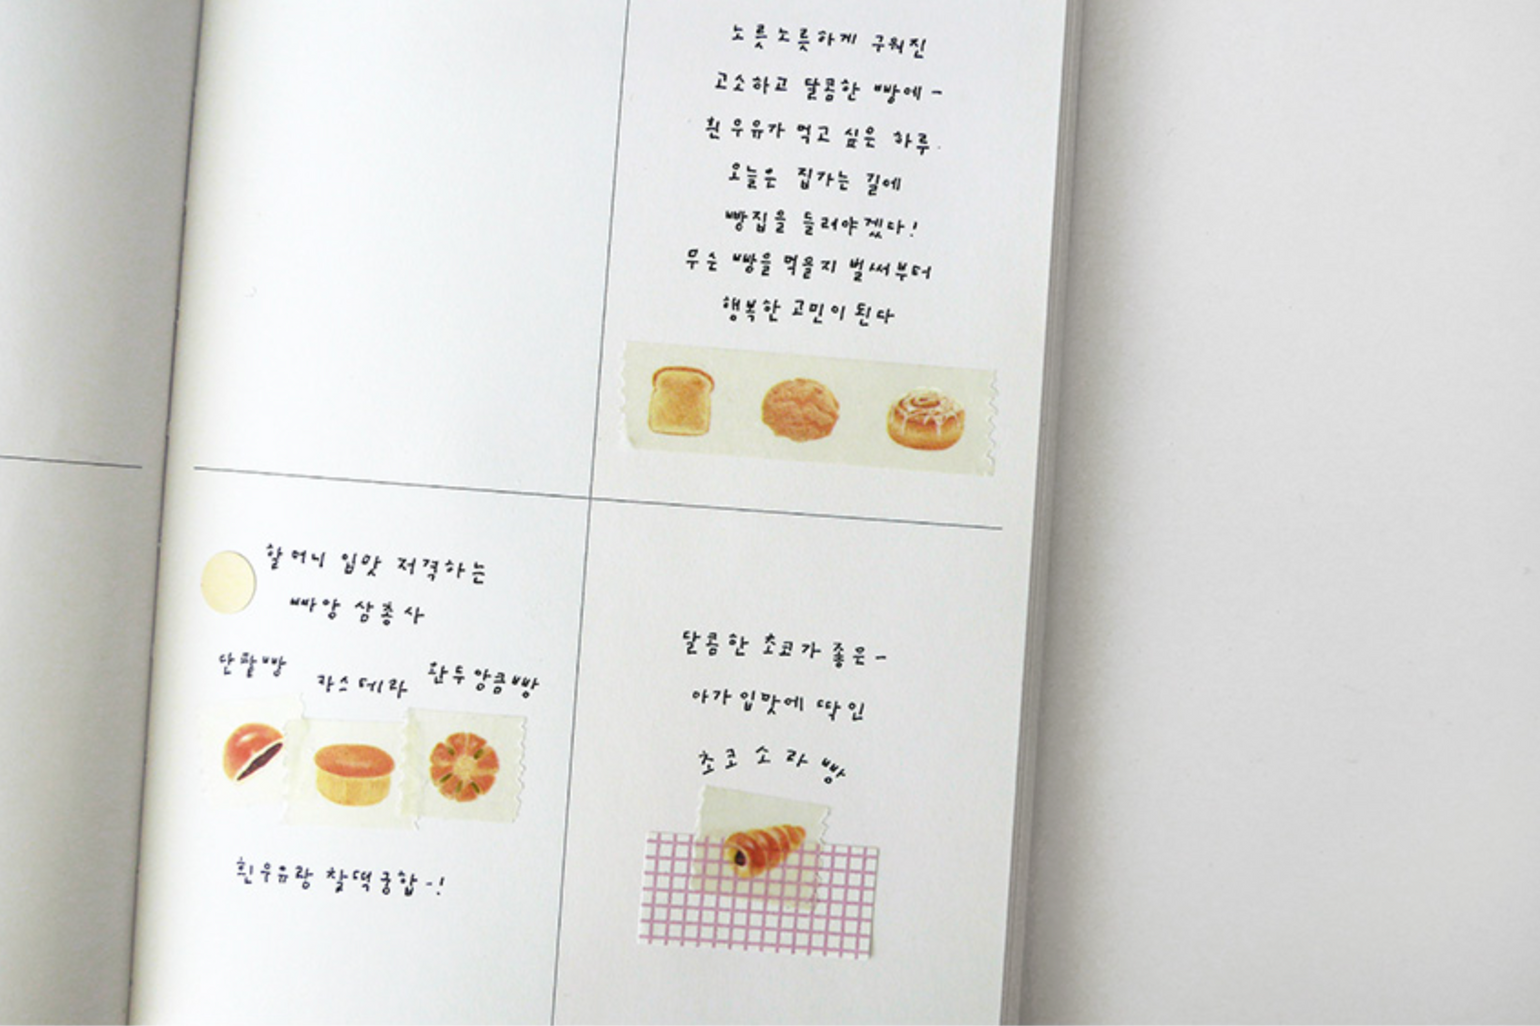 노릇노릇하게 구워진
고소하고 달콤한 빵에-
흰우유가 먹고 싶은 하루.
오늘은 집가는 길에
빵집을 들러야겠다!
무슨 빵을 먹을지 벌써부터
행복한 고민이 된다
할머니 입맛 저격하는
빠앙 삼총사
단팥빵
카스테라
완두앙금빵
흰우유랑 찰떡궁합-!
달콤한 초코가 좋은-
아가입맛에 딱인
초코소라빵